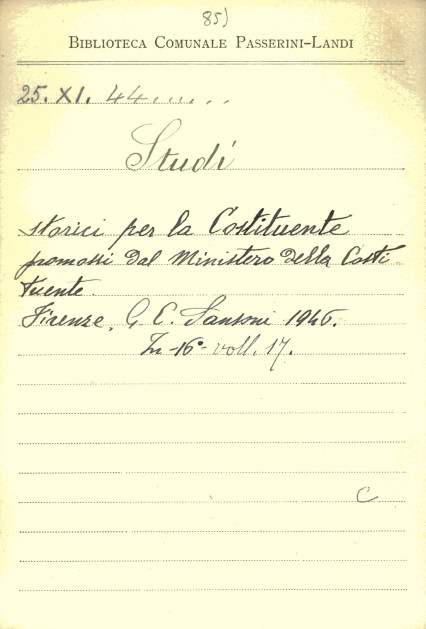 85)
BIBLIOTECA COMUNALE PASSERINI-LANDI
25. XI. 44......
Studi
storici per la Costituente
promossi dal Ministero della Costi
tuente.
Firenze, G. C. Sansoni 1946.
In-16°- voll. 17.
C